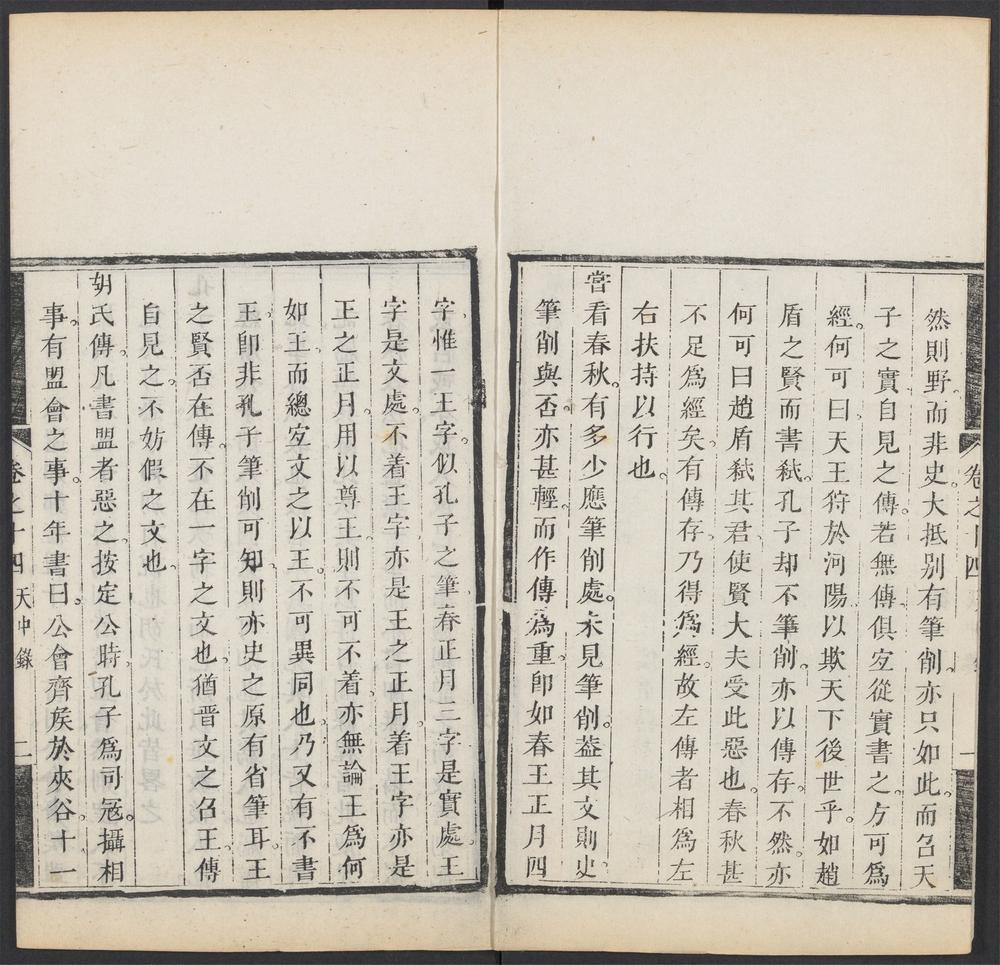 卷之十四
一
然則野。而非史。大抵别有筆削。亦只如此。而召天
子之實。自見之傳。若無傳俱㝎從實書之。方可爲
經。何可曰。天王狩於河陽。以欺天下後世乎。如趙
盾之賢而書弑。孔子却不筆削。亦以傳存。不然。亦
何可曰趙盾弑其君。使賢大夫受此惡也。春秋甚
不足爲經矣。有傳存。乃得爲經。故左傳者相爲左
右扶持以行也。
嘗看春秋。有多少應筆削處。未見筆削。葢其文則史。
筆削與否。亦甚輕。而作傳爲重。卽如春王正月四
字。惟一王字。似孔子之筆。春正月三字是實處。王
字是文處。不着王字亦是王之正月。着王字亦是
正之正月。用以尊王。則不可不着。亦無論王爲何
如王。而總㝎文之以王。不可異同也。乃又有不書
王。卽非孔子筆削可知。則亦史之原有省筆耳。王
之賢否在傳。不在一字之文也。猶晋文之召王。傳
自見之。不妨假之文也。
胡氏傳。凡書盟者惡之。按定公時。孔子爲司宼。攝相
事。有盟會之事。十年書曰。公會齊矦於夾谷。十一
卷之十四 天中錄
二